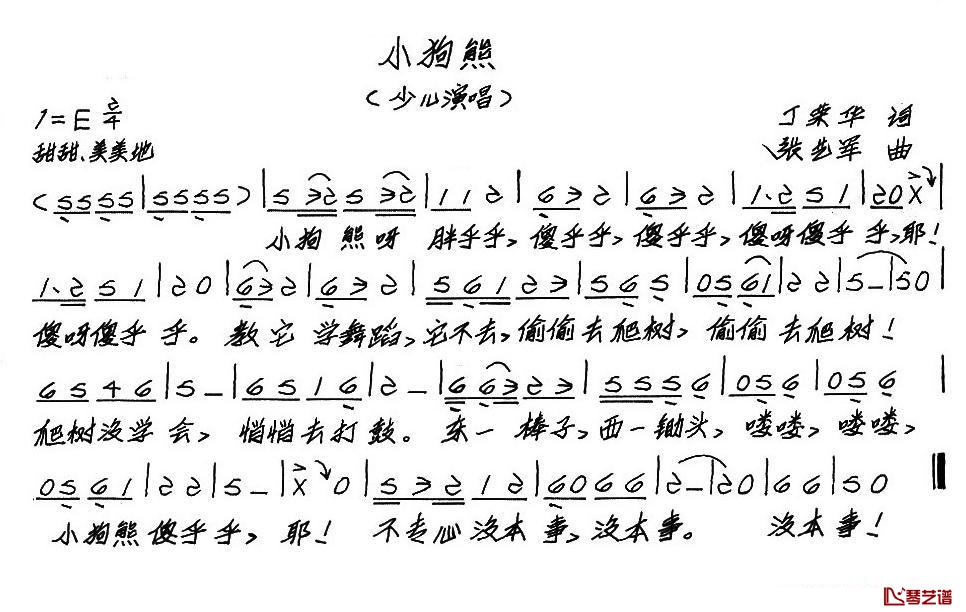 小狗熊
(少儿演唱)
1=E 2/4
丁荣华 词
甜甜、美美地
张艺军 曲
(5555|5555)|5 325 32|112|632|632|1·251|20X|
小狗 熊呀 胖乎乎，傻乎乎，傻乎乎，傻呀傻乎 乎，耶！
1·251|20|632|632|56123|565|0561|22|5-|50|
傻呀傻乎 乎。教它 学舞蹈，它不去，偷偷去爬树，偷偷 去爬树！
6546|5-|6516|2-|66323|5556|056|056|
爬树没学会，悄悄去打鼓。东一 棒子，西一锄头，喽喽，喽喽，
0561|22|5-|X0|53212|6066|2-|20|66|50
小狗熊傻乎乎，耶！ 不专心没本事，没本事。 没本事！
琴艺谱